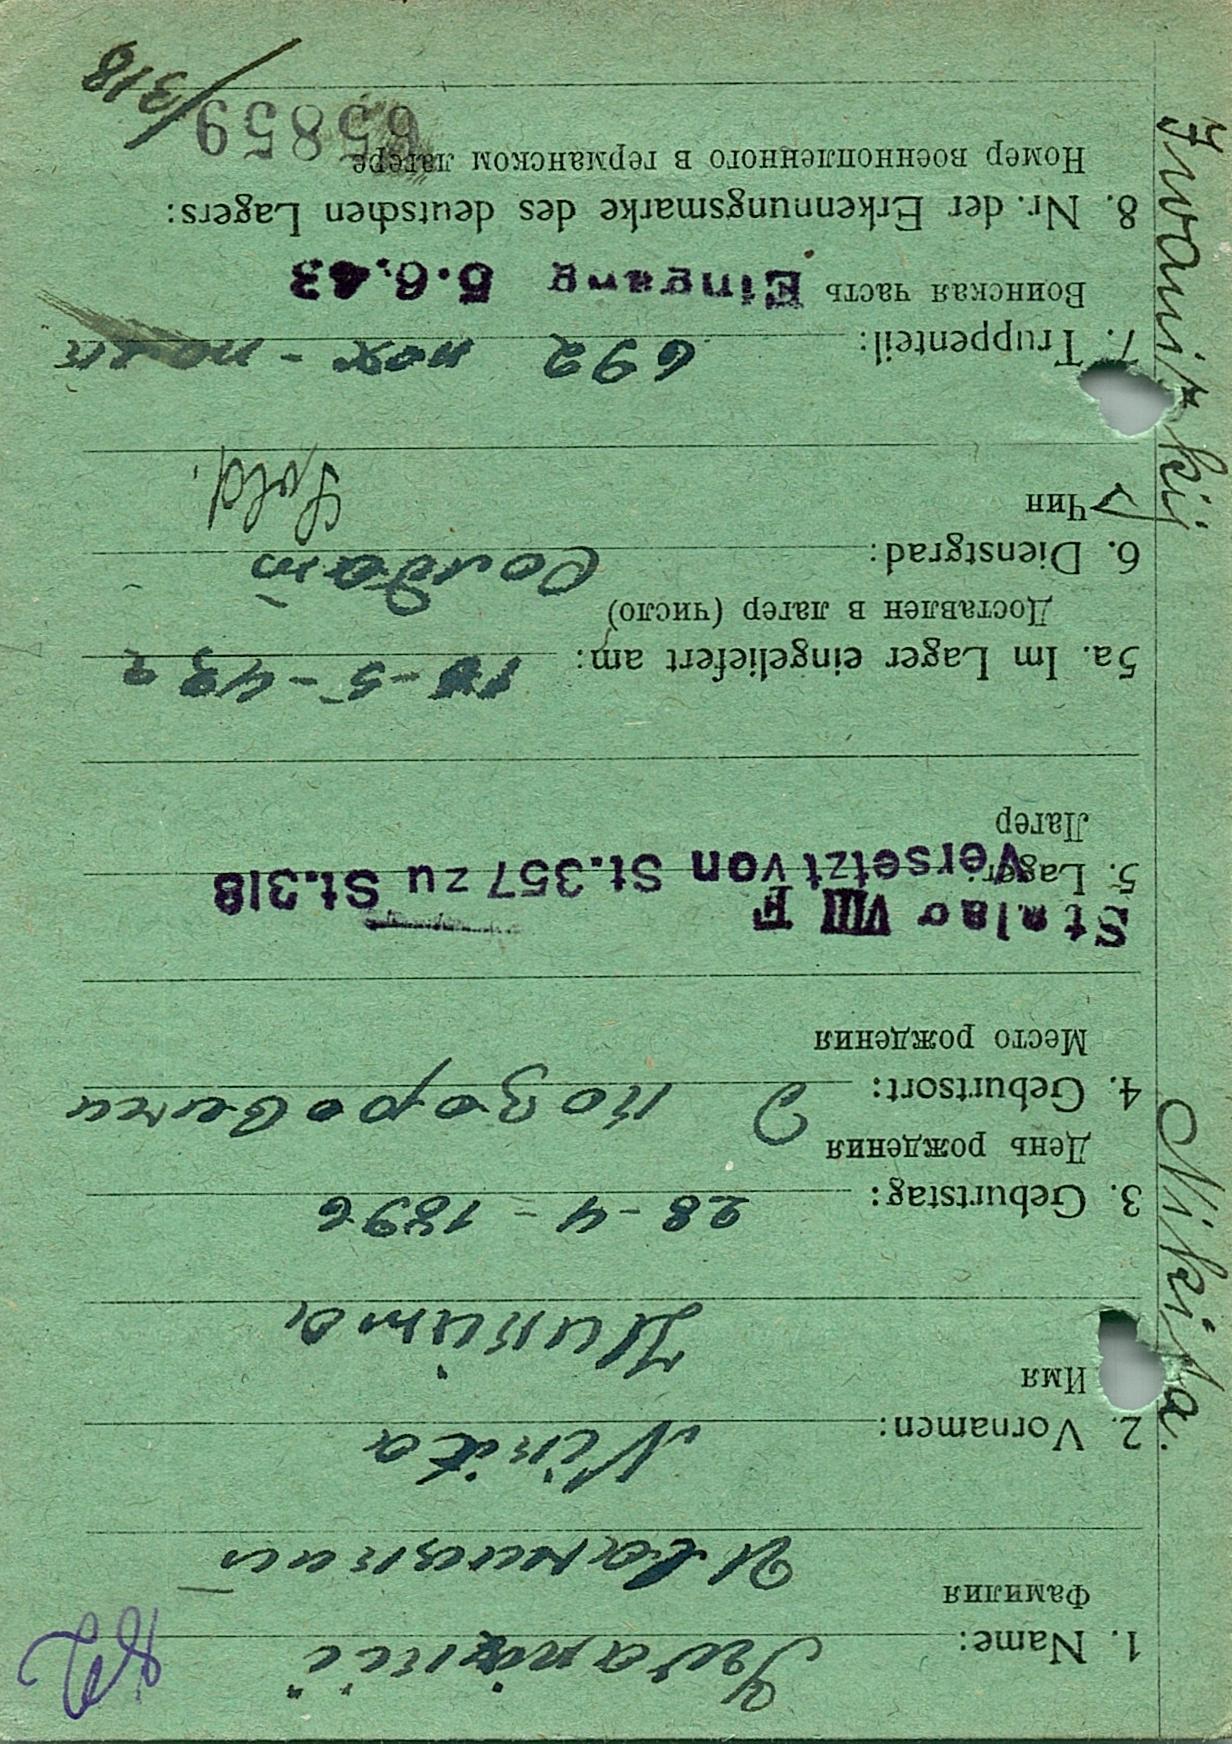 1. Name: Iwanizkii
Фамилия
Иваницкий
2. Vornamen: Nikita
Имя
Никита
3. Geburtstag: 28-4-1896
День рождения
4. Geburtsort:
Место рождения
Stalag VIII F
5. Lager: Versetzt von St.357 zu St.318
Лагер
5a. Im Lager eingeliefert am: -5-43 г
Доставлен в лагер (число)
6. Dienstgrad: Солдат
Чин Sold.
7. Truppenteil: 692 полк
Воинская часть Eingang 5.6.43
8. Nr. der Erkennungsmarke des deutschen Lagers:
Номер военнопленного в германском лагере
65859/318
Iwanitzkij Nikita.